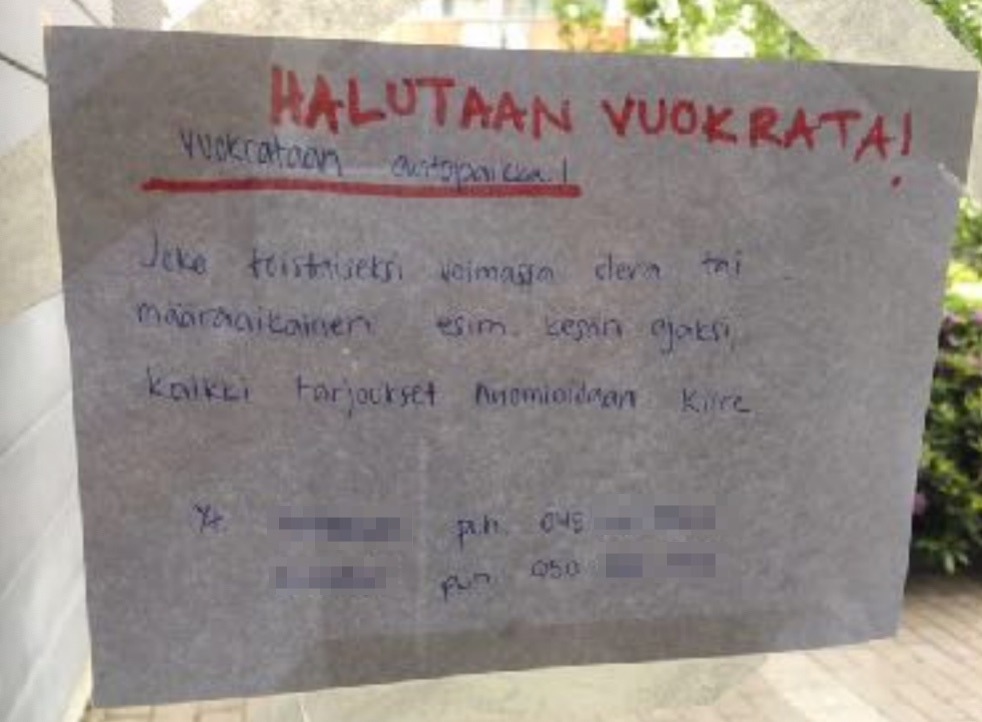 HALUTAAN VUOKRATA!
Vuokrataan autopaikka!
Joko toistaiseksi voimassa oleva tai
määräaikainen esim. kesän ajaksi,
Kaikki tarjoukset huomioidaan Kiire
Yt. puh. 045
puh. 050